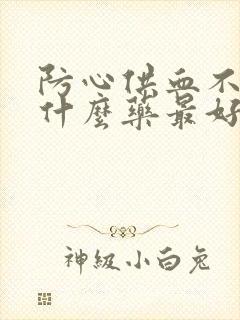 防心供血不
什麼藥最好
神級小白兔